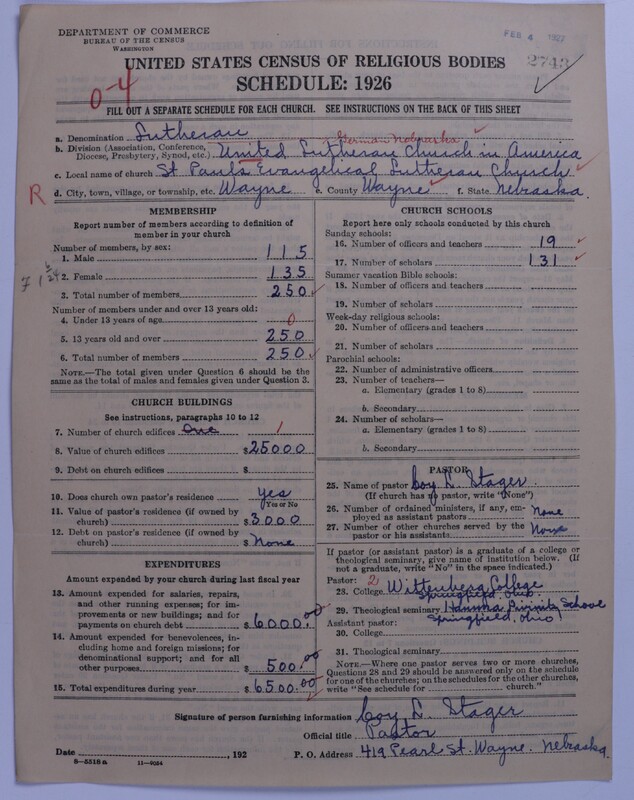 DEPARTMENT OF COMMERCE
BUREAU OF THE CENSUS
WASHINGTON
FEB 4 1927
2743
UNITED STATES CENSUS OF RELIGIOUS BODIES
SCHEDULE: 1926
0-4
FILL OUT A SEPARATE SCHEDULE FOR EACH CHURCH. SEE INSTRUCTIONS ON THE BACK OF THIS SHEET
a. Denomination Lutheran
German Nebraska
b. Division (Association, Conference, Diocese, Presbytery, Synod, etc.) United Lutheran Church in America
c. Local name of church St Pauls Evangelical Lutheran Church
R
d. City, town, village, or township, etc. Wayne e. County Wayne f. State Nebraska.
MEMBERSHIP
Report number of members according to definition of
member in your church
Number of members, by sex:
1. Male 115
2. Female 135
3. Total number of members 250
Number of members under and over 13 years old:
4. Under 13 years of age 0
5. 13 years old and over 250
6. Total number of members 250
NOTE.—The total given under Question 6 should be
same as the total of males and females given under Question 3.
CHURCH BUILDINGS
See instructions, paragraphs 10 to 12
7. Number of church edifices One 1
8. Value of church edifices $25000
9. Debt on church edifices $
10. Does church own pastor's residence yes
Yes or No
11. Value of pastor's residence (if owned by
church) $3000
12. Debt on pastor's residence (if owned by
church) $None
EXPENDITURES
Amount expended by your church during last fiscal year
13. Amount expended for salaries, repairs,
and other running expenses; for im-
provements or new buildings; and for
payments on church debt $6000.00
14. Amount expended for benevolences, in-
cluding home and foreign missions; for
denominational support; and for all
other purposes $500.00
15. Total expenditures during year $6500.00
CHURCH SCHOOLS
Report here only schools conducted by this church
Sunday schools:
16. Number of officers and teachers 19
17. Number of scholars 131
Summer vacation Bible schools:
18. Number of officers and teachers
19. Number of scholars
Week-day religious schools:
20. Number of officers and teachers
21. Number of scholars
Parochial schools:
22. Number of administrative officers
23. Number of teachers—
a. Elementary (grades 1 to 8)
b. Secondary
24. Number of scholars—
a. Elementary (grades 1 to 8)
b. Secondary
PASTOR
25. Name of pastor Coy L. Stager
(If church has no pastor, write "None")
26. Number of ordained ministers, if any, em-
ployed as assistant pastors None
27. Number of other churches served by the
pastor or his assistants None
If pastor (or assistant pastor) is a graduate of a college or
theological seminary, give name of institution below. (If
not a graduate, write "No" in the space indicated.)
Pastor: 2
28. College Wittenberg College
Springfield, Ohio
29. Theological seminary Hamma Divinity School
Springfield, Ohio
Assistant pastor:
30. College
31. Theological seminary
NOTE.—Where one pastor serves two or more churches,
Questions 28 and 29 should be answered only on the schedule
for one of the churches; on the schedules for the other churches,
write "See schedule for church."
Signature of person furnishing information Coy L. Stager
Official title Pastor
Date , 192
P. O. Address 419 Pearl St. Wayne. Nebraska.
8—5518 a 11—9024